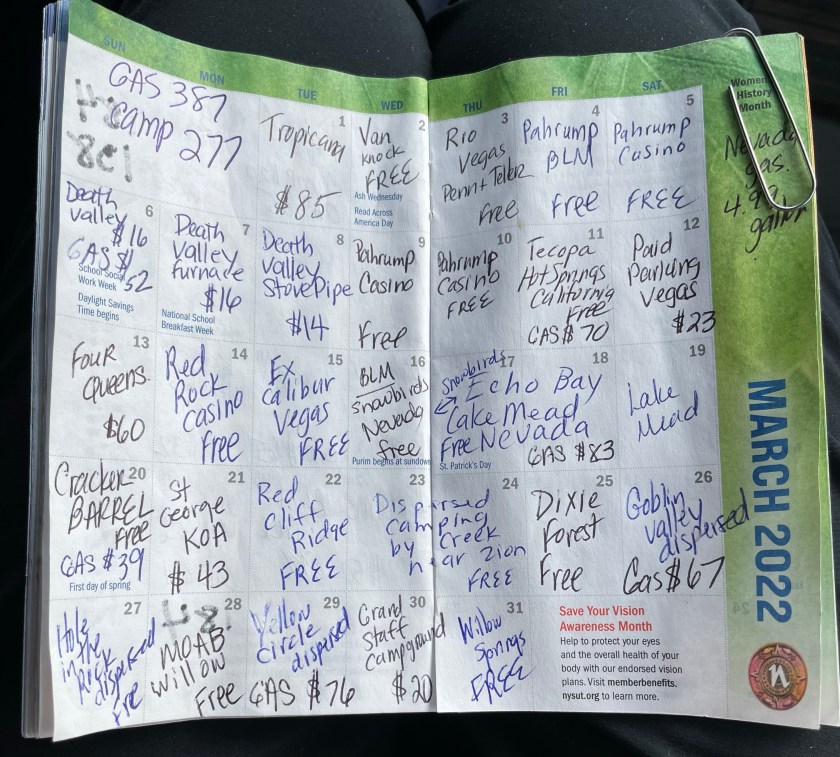 SUN
MON
TUE
WED
THU
FRI
SAT
GAS 387
Camp 277
1
Tropicana
$85
2
Van
knock
FREE
Ash Wednesday
Read Across
America Day
3
Rio
Vegas
Penn + Teller
Free
4
Pahrump
BLM
Free
5
Pahrump
Casino
FREE
Women's
History
Month
Nevada
gas.
6
Death
Valley
$16
GAS $
52
School Social
Work Week
Daylight Savings
Time begins
7
Death
Valley
furnace
$16
National School
Breakfast Week
8
Death
Valley
StovePipe
$14
9
Pahrump
Casino
Free
10
Pahrump
Casino
FREE
11
Tecopa
Hot Springs
California
Free
GAS $70
12
Paid
Parking
Vegas
$23
13
Four
Queens.
$60
14
Red
Rock
Casino
Free
15
Ex
calibur
Vegas
FREE
16
BLM
snowbirds
Nevada
free
Purim begins at sundown
17
Snowbirds
18
Echo Bay
Lake Mead
Free Nevada
GAS $83
St. Patrick's Day
19
Lake
Mead
20
Cracker
BARREL
Free
GAS $39
First day of spring
21
St
George
KOA
$43
22
Red
Cliff
Ridge
FREE
23
24
Dispersed
camping
by Creek
near Zion
FREE
25
Dixie
Forest
Free
26
Goblin
valley
dispersed
Gas $67
27
Hole
in the
Rock
dispersed
free
28
MOAB
Willow
Free
29
Yellow
Circle
dispersed
GAS $76
30
Grand
Staff
Campground
$20
31
Willow
Springs
FREE
Save Your Vision
Awareness Month
Help to protect your eyes
and the overall health of your
body with our endorsed vision
plans. Visit memberbenefits.
nysut.org to learn more.
MARCH 2022